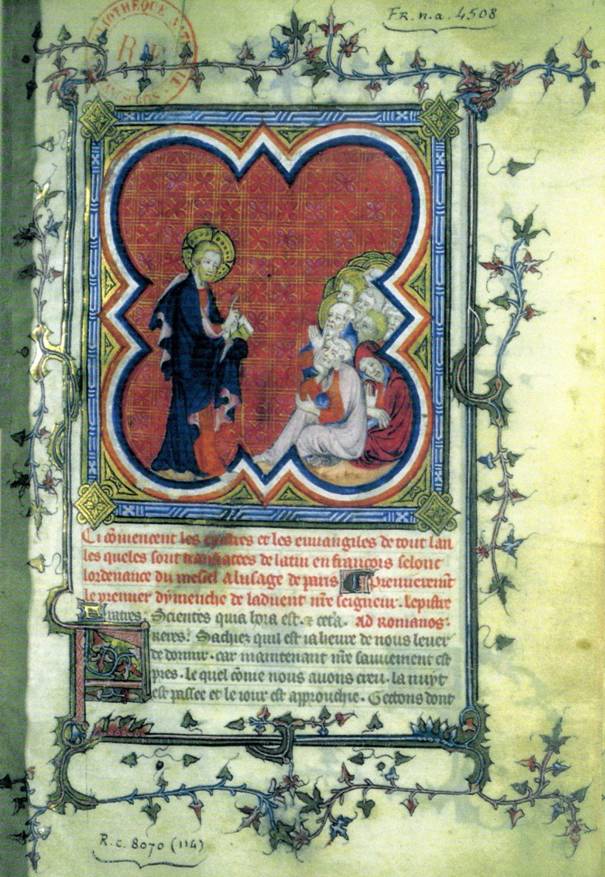 Fr. n. a. 4508
BIBLIOTHÈQUE
Ci cōmencent les epistres et les euuangiles de tout lan
les queles sont translatees de latin en francois selont
lordenance du messel a lusage de paris Et premierement
le premier dymenche de laduent nr̄e seigneur. Lepistre
Fratres: Scientes quia hora est. & cetā. Ad Romanos:
Freres: Sachiez quil est ia heure de nous leuer
de dormir. car maintenant nr̄e sauuement est
pres. le quel cōme nous auons creu. la nuyt
est passee et le iour est approuchie. Gectons dont
R.c. 8070 (114)